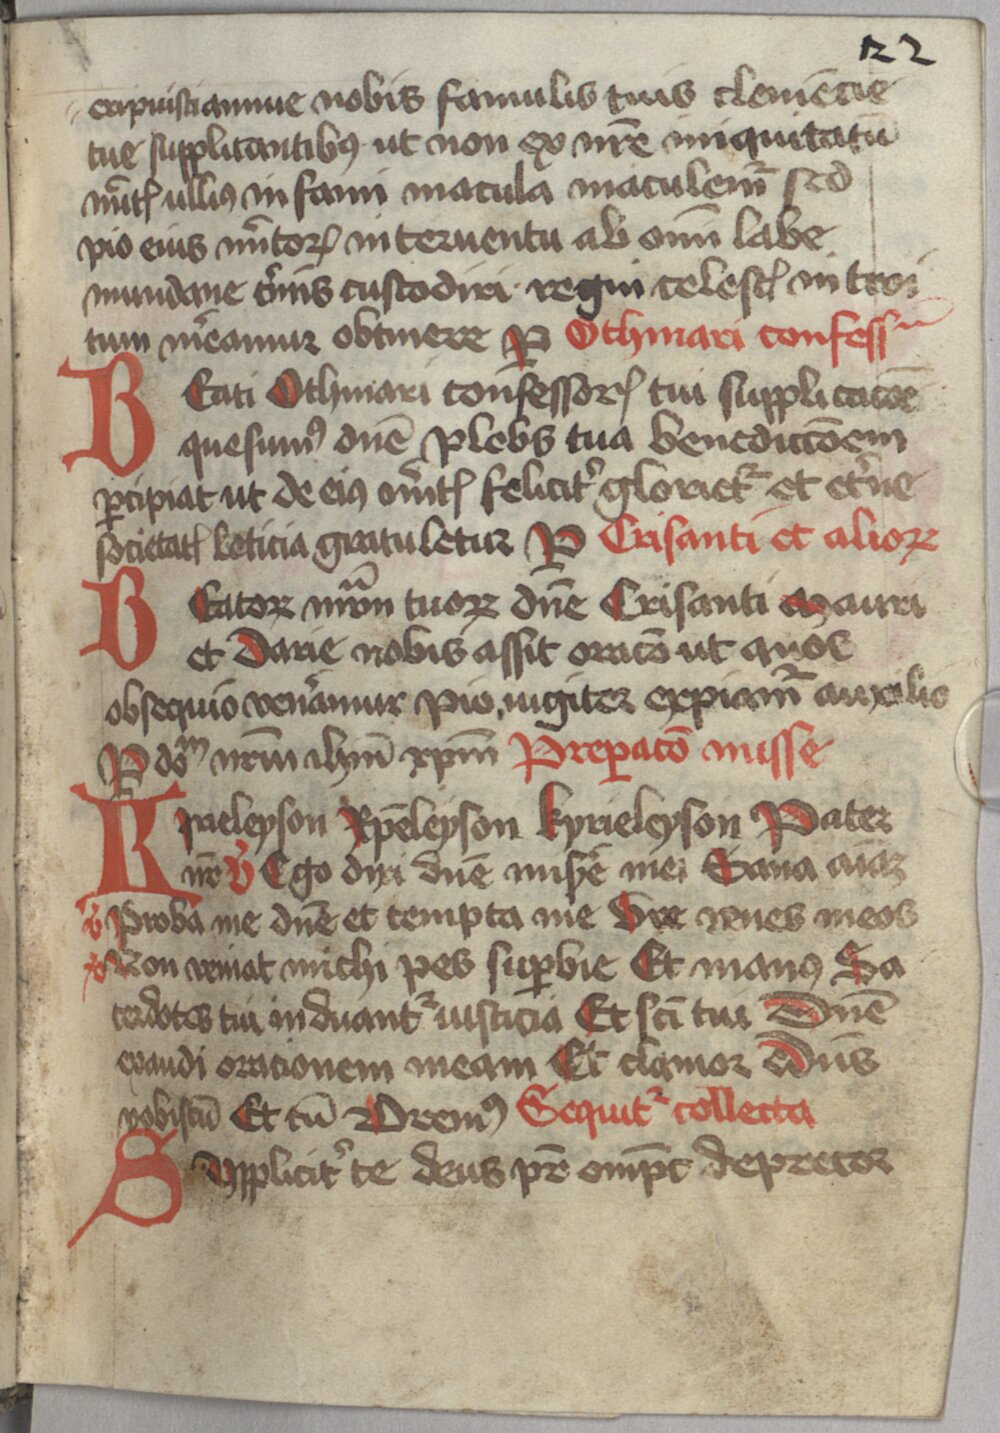 122
eripuisti annue nobis famulis tuis clemēcie
tue supplicantibus ut non ex nr̄e iniquitatū
infami macula maculem̄r sed
pio eius interuentu ab om̄i labe
mundane custodiri regni celest̄ introi
tum meamur obtinere P Othmari confess
Beati Othmari confessor̄ tui supplicacōe
quesumꝰ dn̄e plebs tua benediccōem
percipiat ut de eiꝰ merit̄ felicit̄ gloriet̄r et et̄ne
societat̄ leticia gratuletur P Crisanti et alioꝝ
Beatoꝝ mr̄m tuoꝝ dn̄e Crisanti Mauri
et Darie nobis assit oracō ut quos
obsequio ven̄amur pio iugiter expiam̄r auxilio
P dom̄ nr̄m ihm̄ xpm̄ Preparacō misse
Kyrieleyson Xp̄eleyson kyrieleyson Pater
nr̄ v̄ Ego dixi dn̄e mis̄e mei Sana aīaꝫ
v̄ Proba me dn̄e et tempta me Vre renes meos
v̄ Non veniat michi pes sup̄bie Et manꝰ Sa
cerdotes tui induant̄r iusticia Et sc̄i tui Dn̄e
exaudi orationem meam Et clamor Dn̄s
vobiscū Et cū Oremꝰ Sequit̄r collecta
Supplicit̄ te deus pr̄ omp̄t deprecor